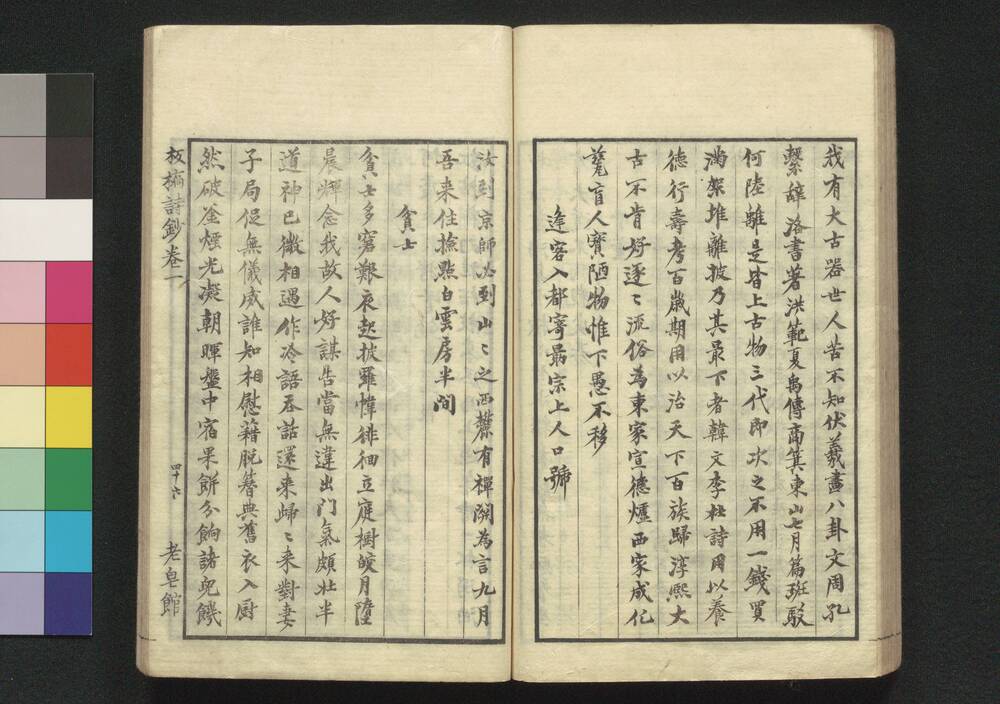 我有大古器世人苦不知伏羲畫八卦文周孔
繫辭洛書著洪範夏禹傳商箕東山七月篇斑駁
何陸離是皆上古物三代即次之不用一錢買
滿架堆離披乃其最下者韓文李杜詩用以養
德行壽考百歲期用以治天下百族歸淳熙大
古不肯好逐〻流俗為東家宣德爐西家成化
甆盲人寶陋物惟下愚不移
逢客入都寄最宗上人口號
汝到京師必到山〻之西麓有禪關為言九月
吾來住撿點白雲房半間
貧士
貧士多窘艱夜起披羅幃徘徊立庭樹皎月墮
晨輝念我故人好謀告當無違出門氣頗壯半
道神已微相遇作冷語吞話還來歸〻來對妻
子局促無儀威誰知相慰藉脫簪典舊衣入厨
然破釜煙光凝朝暉盤中宿果餅分餉諸兒饑
板橋詩鈔卷一
四十六
老皂館